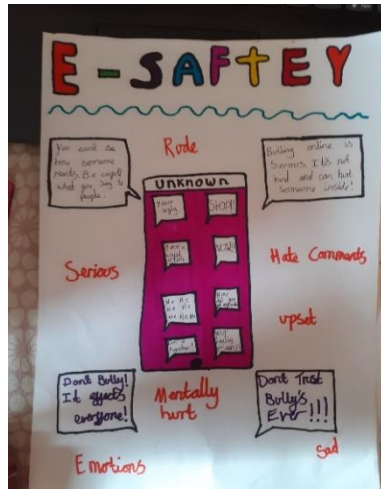 E-SAFTEY
Rude
You cant se
how someone
reacts. Be carefull
what you say to
people.
Bullying online is
Serious. It's not
kind and can hurt
Someone inside!
UNKNOWN
STOP!
Serious
Hate Comments
upset
Dont Bully!
It effects
everyone!
Mentally
hurt
Dont Trust
Bully's
Ever!!!
Emotions
Sad